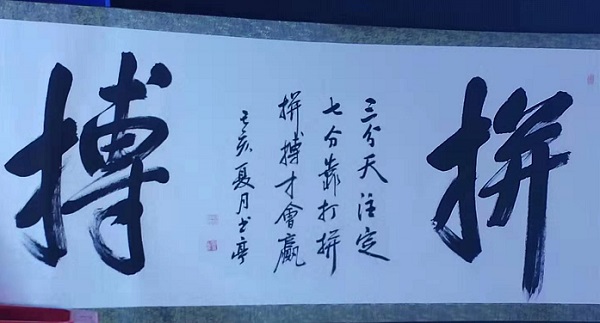 拼
三分天注定
七分靠打拼
拼搏才會贏
己亥夏月书亭
搏